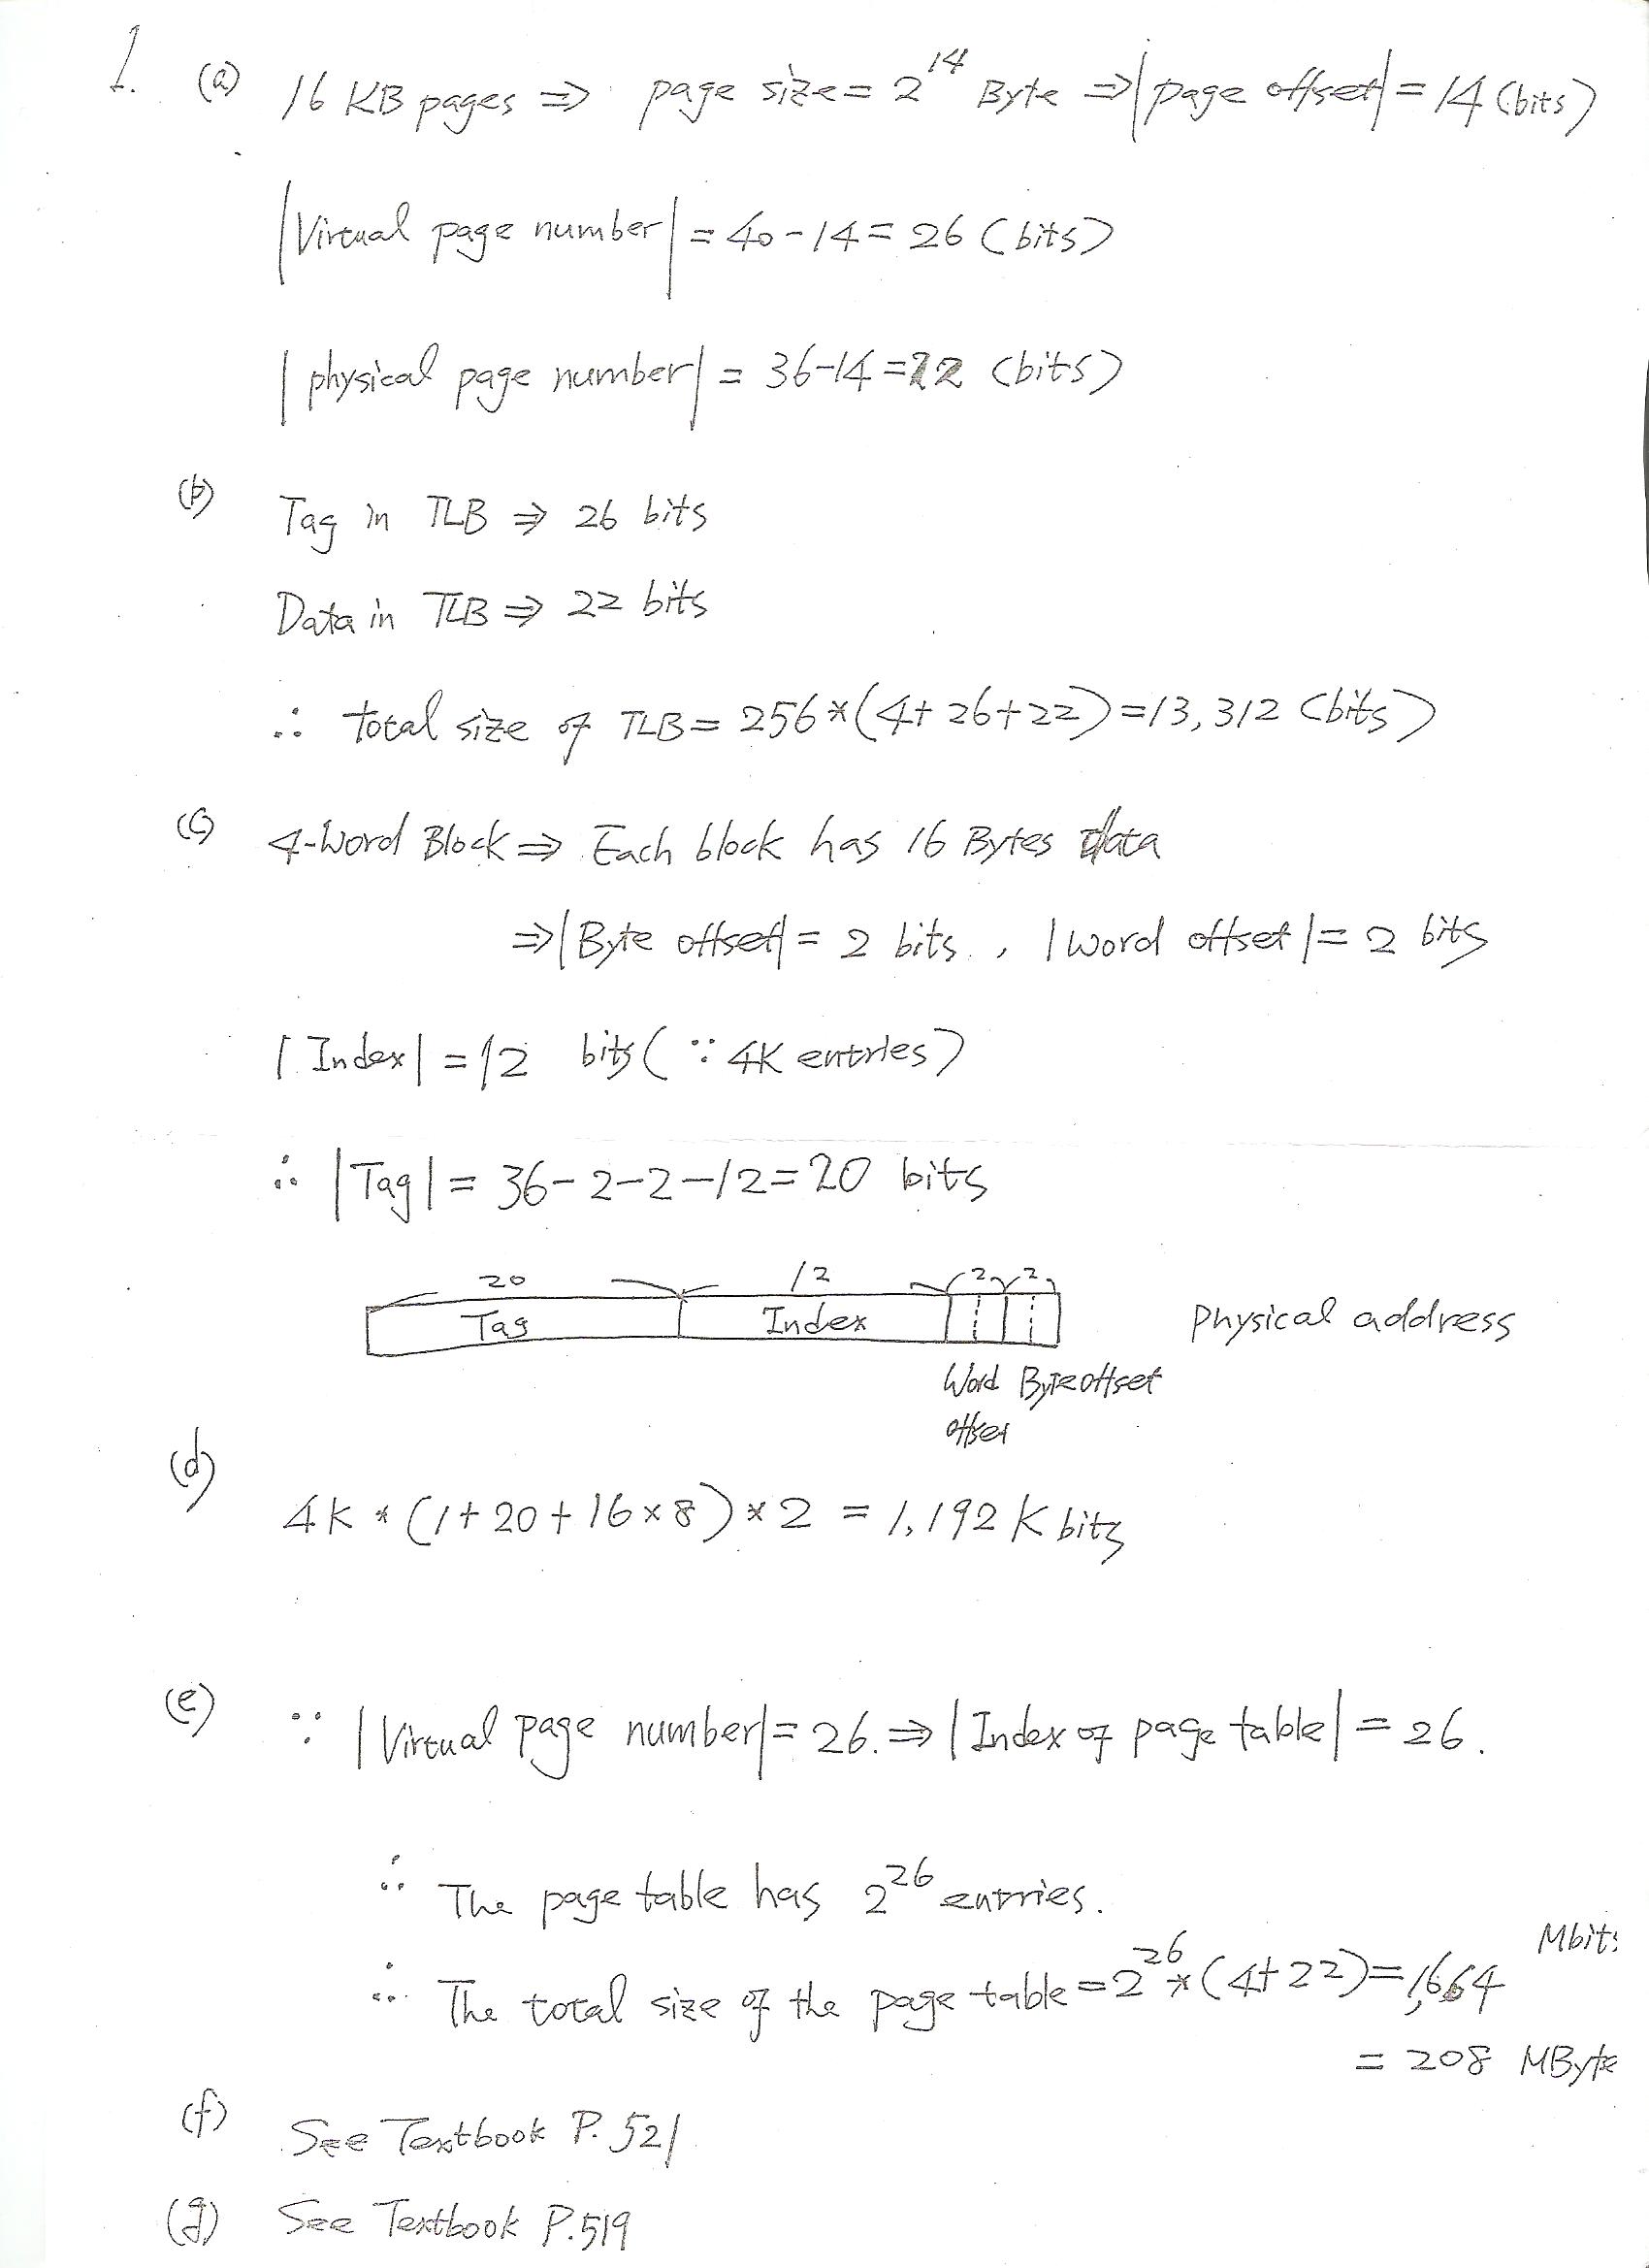 1. (a) 16 KB pages ⇒ page size = 2^14 Byte ⇒ |page offset| = 14 (bits)
|Virtual page number| = 40 - 14 = 26 (bits)
|physical page number| = 36-14 = 22 (bits)
(b) Tag in TLB ⇒ 26 bits
Data in TLB ⇒ 22 bits
∴ total size of TLB = 256 * (4+26+22) = 13,312 (bits)
(c) 4-Word Block ⇒ Each block has 16 Bytes data
⇒ |Byte offset| = 2 bits., |word offset| = 2 bits
|Index| = 12 bits (∵ 4K entries)
∴ |Tag| = 36-2-2-12 = 20 bits
20 12 2 2
Tag Index Physical address
Word Byte offset
offset
(d) 4K * (1+20+16×8) * 2 = 1,192 K bits
(e) ∵ |Virtual page number| = 26. ⇒ |Index of page table| = 26.
∴ The page table has 2^26 entries.
∴ The total size of the page table = 2^26 * (4+22) = 1,664 Mbits
= 208 MByte
(f) See Textbook P. 521
(g) See Textbook P.519